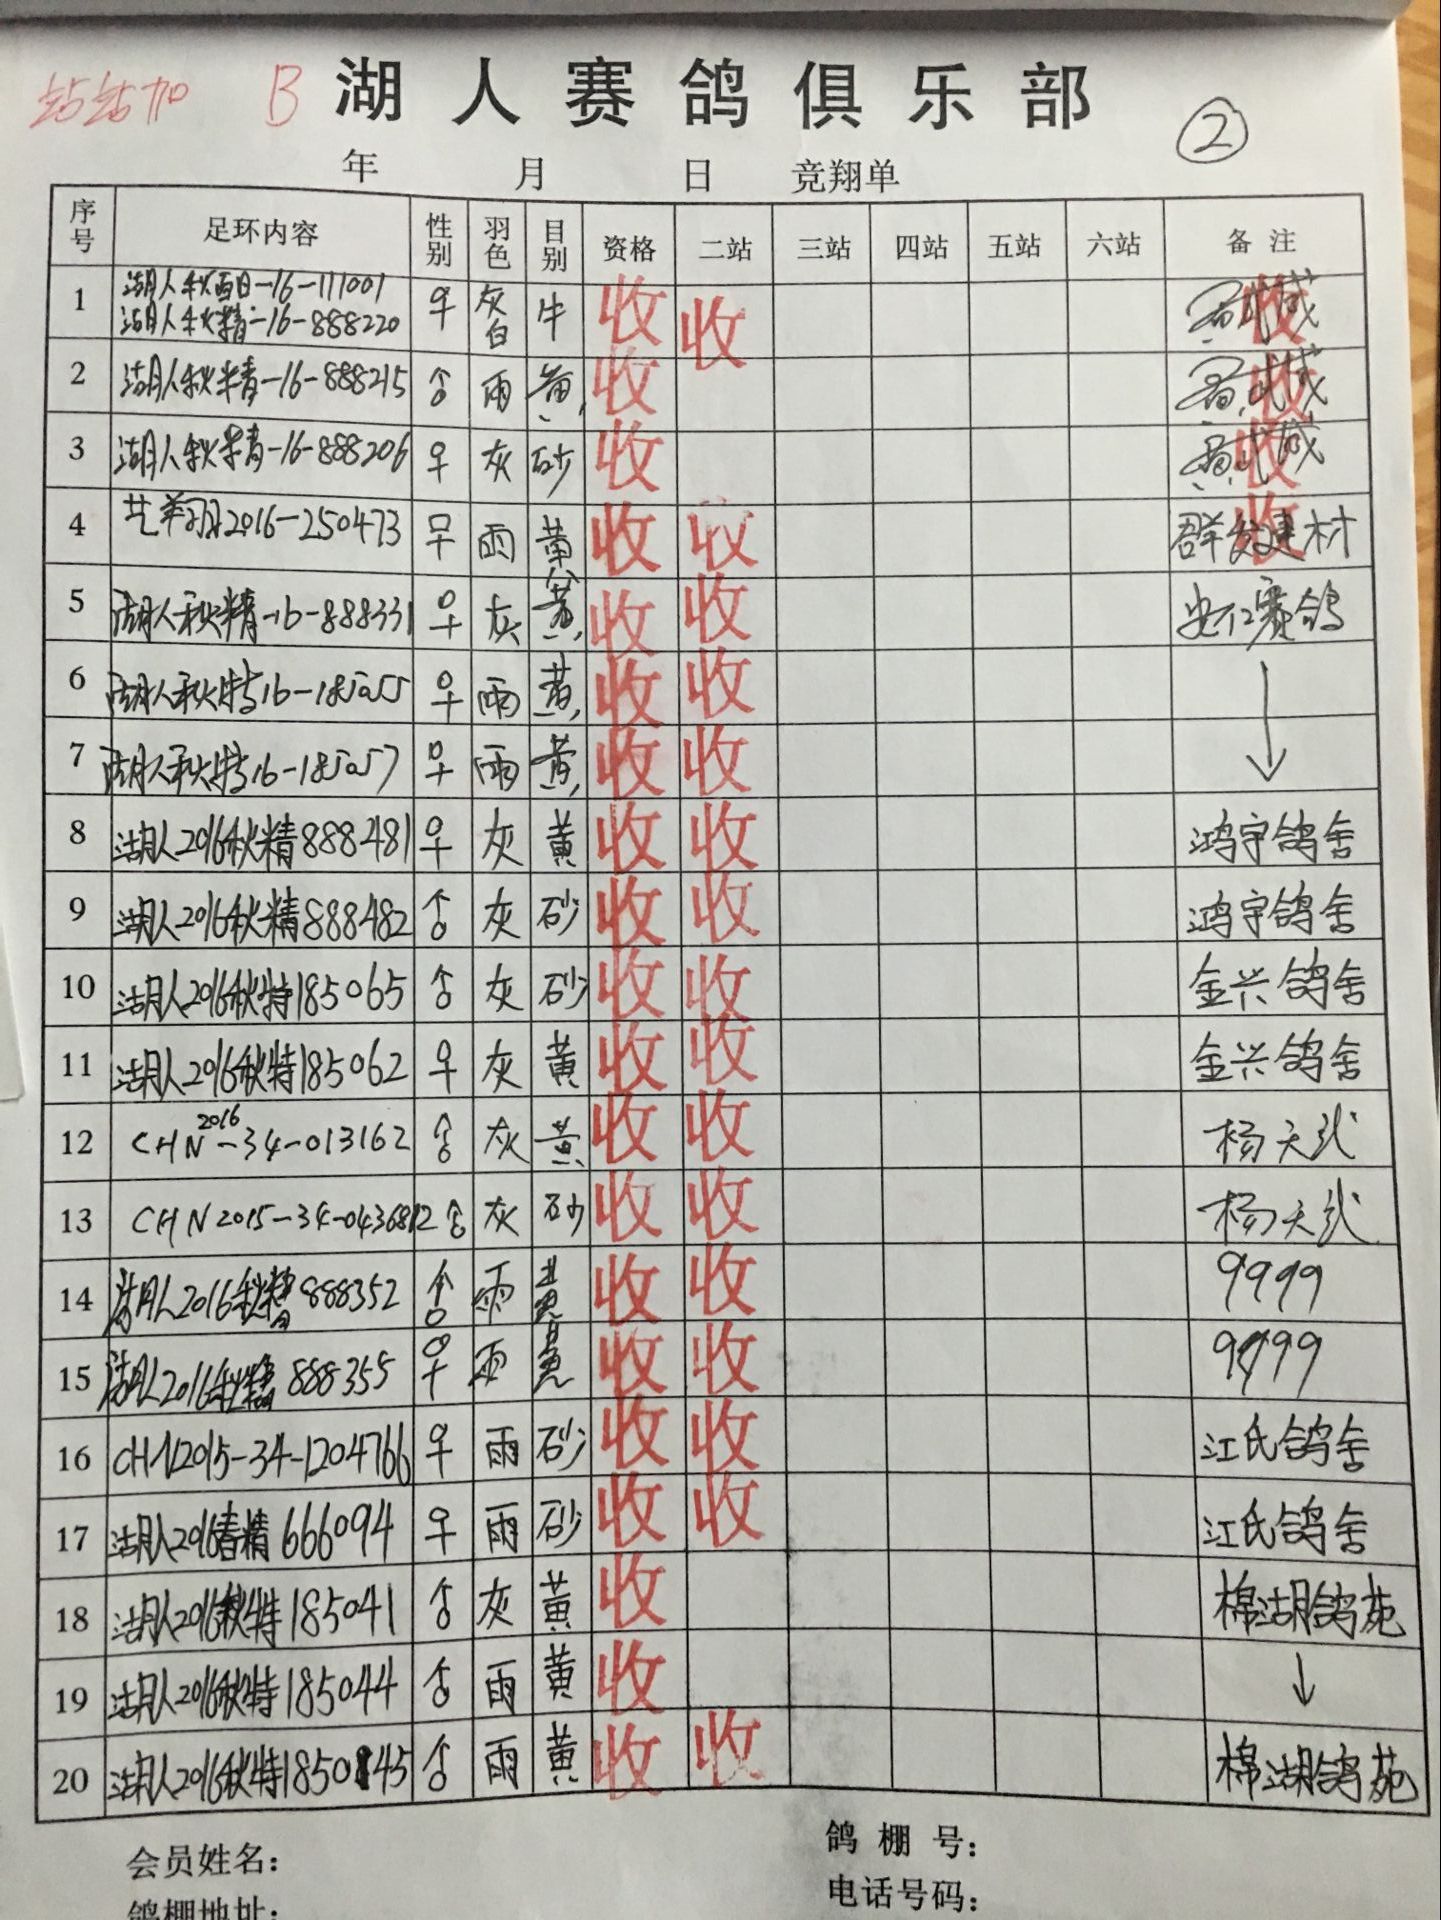 站站加 B 湖人赛鸽俱乐部 ②
年 月 日 竞翔单
序号 足环内容 性别 羽色 目别 资格 二站 三站 四站 五站 六站 备注
湖人秋百日-16-111001
1 湖人秋精-16-888220 ♀ 灰白 牛 收 收 收
2 湖人秋精-16-888215 ♂ 雨 黄 收 收
3 湖人秋精-16-888206 ♀ 灰 砂 收 收
4 艺翔羽2016-250473 ♀ 雨 黄 收 收 群发建材 收
5 湖人秋精-16-888331 ♀ 灰 黄 收 收 安仁赛鸽
6 湖人秋特16-185055 ♀ 雨 黄 收 收 ↓
7 湖人秋特16-185057 ♀ 雨 黄 收 收
8 湖人2016秋精888481 ♀ 灰 黄 收 收 鸿宇鸽舍
9 湖人2016秋精888482 ♂ 灰 砂 收 收 鸿宇鸽舍
10 湖人2016秋特185065 ♂ 灰 砂 收 收 金兴鸽舍
11 湖人2016秋特185062 ♀ 灰 黄 收 收 金兴鸽舍
12 CHN2016-34-013162 ♂ 灰 黄 收 收 杨天武
13 CHN2015-34-0436812 ♂ 灰 砂 收 收 杨天武
14 湖人2016秋精888352 ♂ 雨 黄 收 收 9999
15 湖人2016秋精888355 ♀ 雨 黄 收 收 9999
16 CHN2015-34-1204766 ♀ 雨 砂 收 收 江氏鸽舍
17 湖人2016春精666094 ♀ 雨 砂 收 收 江氏鸽舍
18 湖人2016秋特185041 ♂ 灰 黄 收 棉湖鸽苑
19 湖人2016秋特185044 ♂ 雨 黄 收 ↓
20 湖人2016秋特185045 ♂ 雨 黄 收 收 棉湖鸽苑
会员姓名： 鸽棚号：
鸽棚地址： 电话号码：